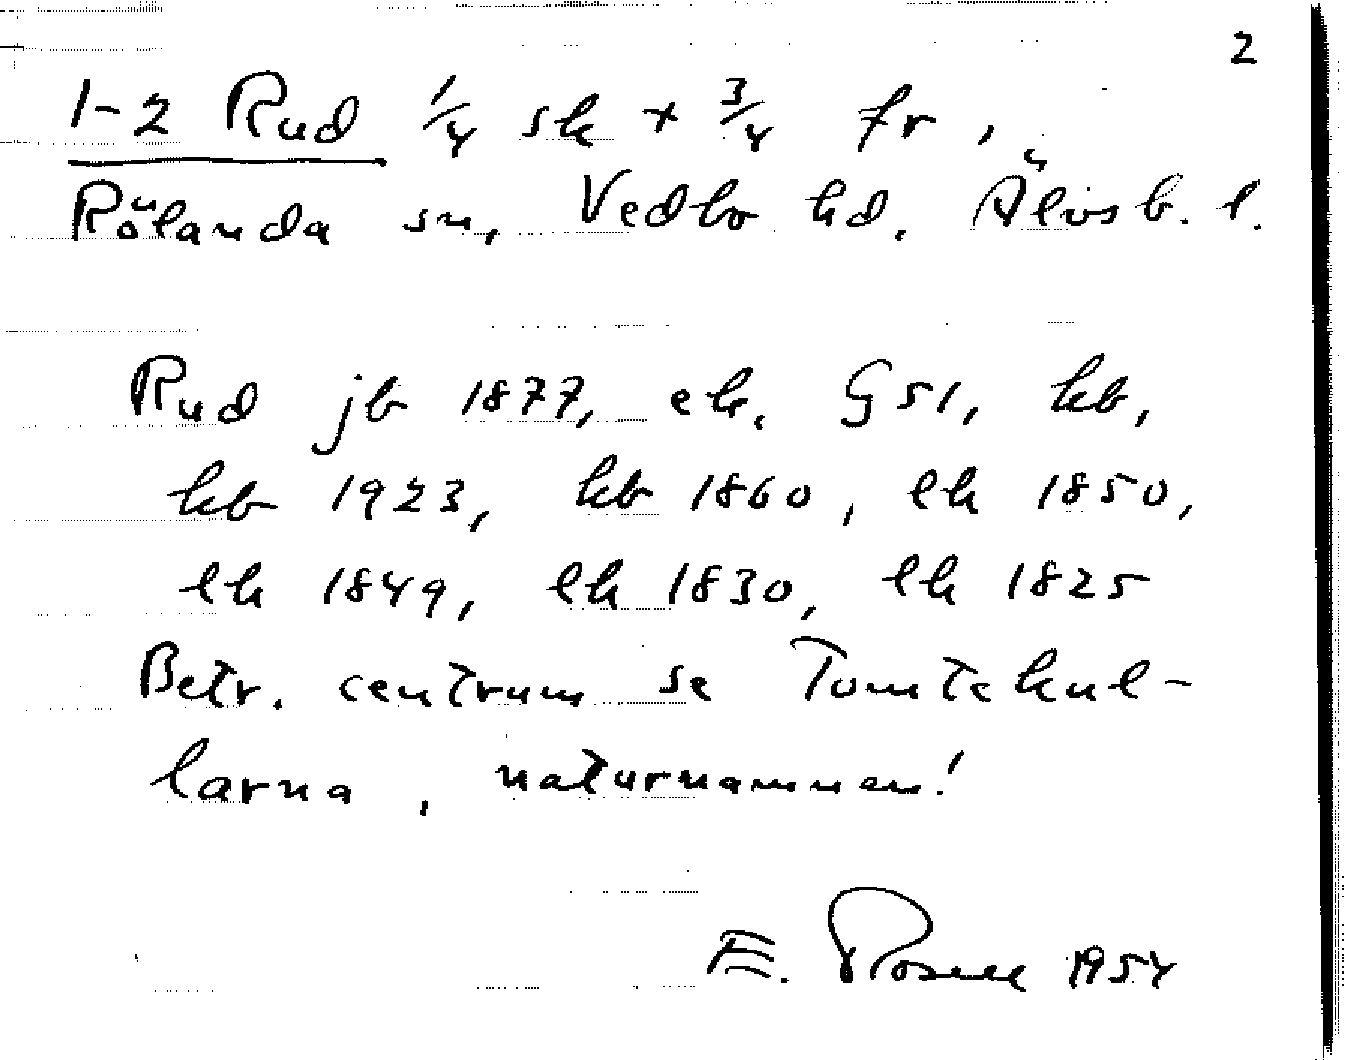 2
1-2 Rud 1/4 sk + 3/4 fr,
Rölanda sn, Vedbo hd. Älvsb. l.
Rud jb 1877, ek. G51, hb,
kb 1923, kb 1860, lh 1850,
lh 1849, lh 1830, lh 1825
Betr. centrum se Tomtekul-
larna, naturnamnen!
E. Rosell 1954